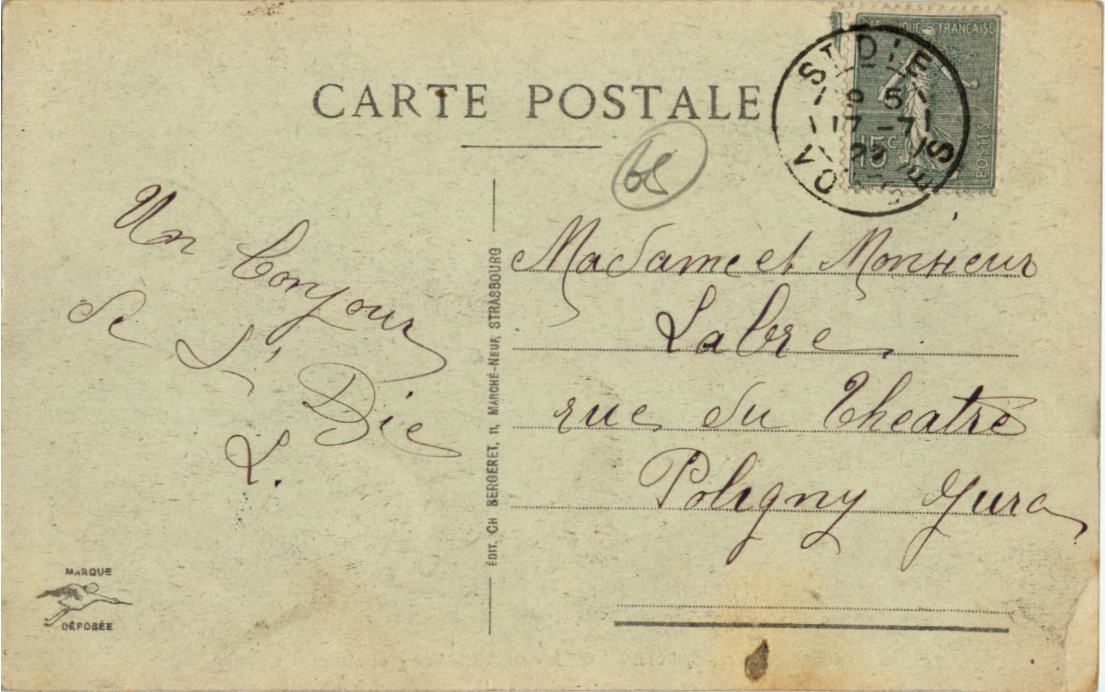 CARTE POSTALE
RÉPUBLIQUE FRANÇAISE
15c
POSTES
ST DIE
17-7
VOSGES
68
Un bonjour
de St
Die
L.
ÉDIT. CH BERGERET, 11, MARCHÉ-NEUF, STRASBOURG
Madame et Monsieur
Labre
rue du Theatre
Poligny Jura
MARQUE
DÉPOSÉE